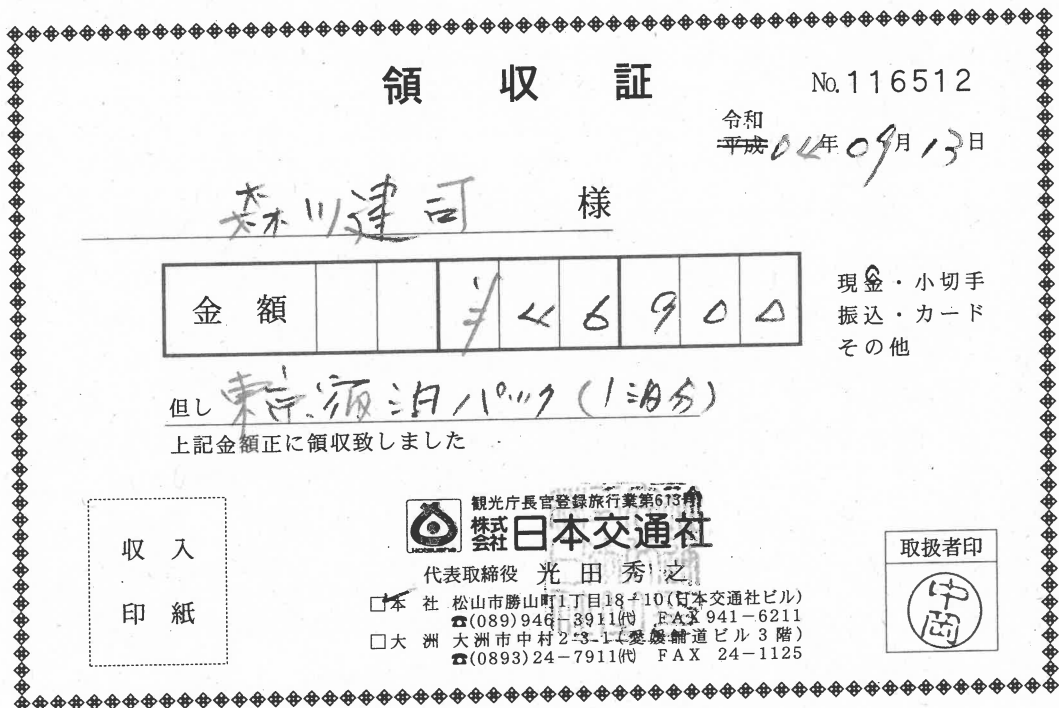 領収証
No.116512
令和
平成04年09月13日
森川建司 様
金額 ¥46900
現金・小切手
振込・カード
その他
但し 東京宿泊パック(1泊分)
上記金額正に領収致しました
収入
印紙
観光庁長官登録旅行業第613号
株式会社 日本交通社
代表取締役 光田秀之
□本社 松山市勝山町1丁目18-10(日本交通社ビル)
☎(089)946-3911㈹ FAX 941-6211
□大洲 大洲市中村2-3-1(愛媛舗道ビル3階)
☎(0893)24-7911㈹ FAX 24-1125
取扱者印